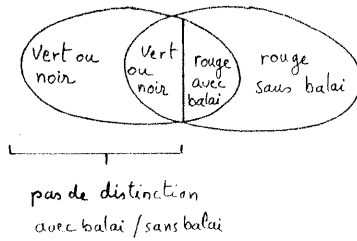 vert ou
noir
vert
ou
noir
rouge
avec
balai
rouge
sans balai
pas de distinction
avec balai / sans balai